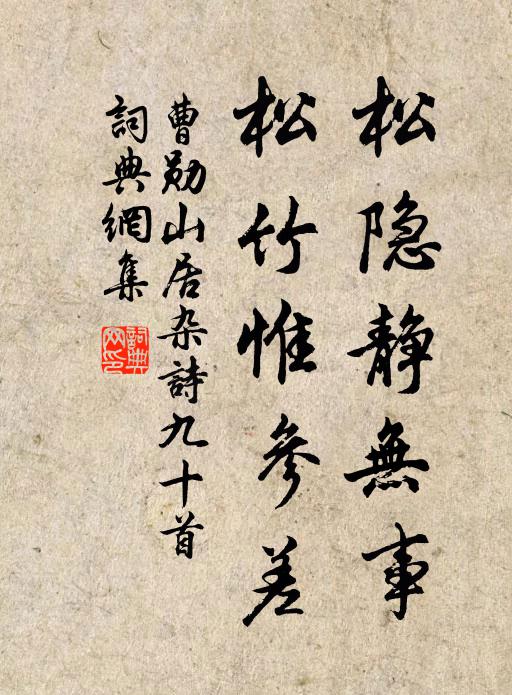 松隐静無事
松竹惟參差
曹勋山居杂詩九十首
詞典網集
詞典網印